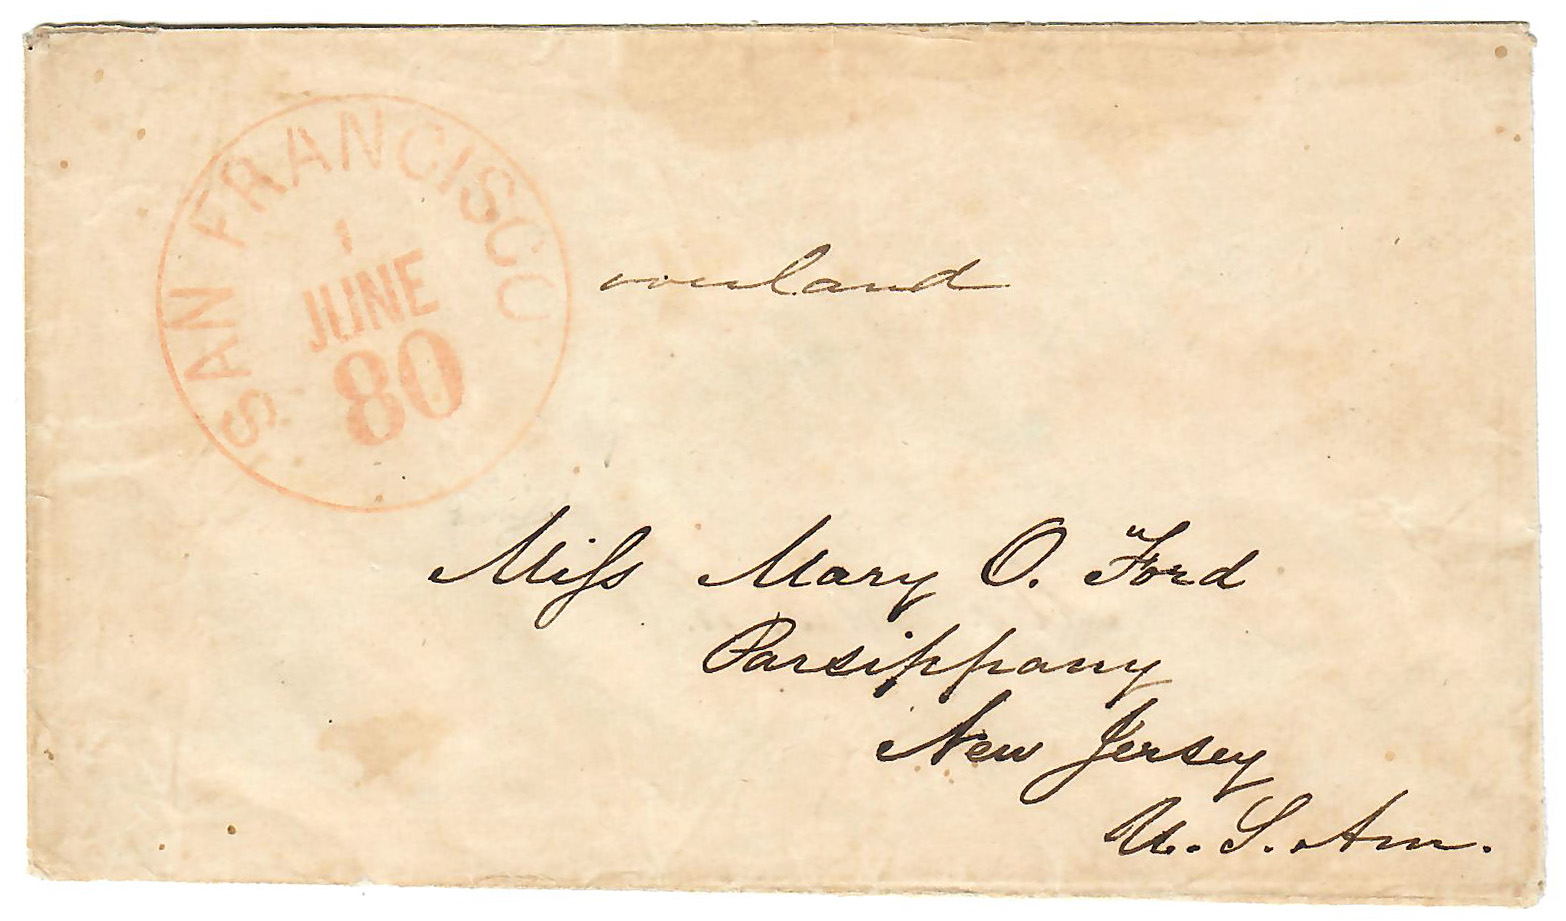 SAN FRANCISCO
1
JUNE
80
overland
Miss Mary O. Ford
Parsippany
New Jersey
U. S. Am.